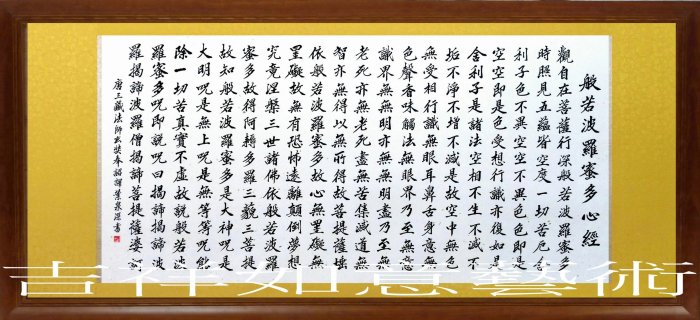 般若波羅蜜多心經
觀自在菩薩行深般若波羅蜜多
時照見五蘊皆空度一切苦厄舍
利子色不異空空不異色色即是
空空即是色受想行識亦復如是
舍利子是諸法空相不生不滅不
垢不淨不增不減是故空中無色
無受想行識無眼耳鼻舌身意無
色聲香味觸法無眼界乃至無意
識界無無明亦無無明盡乃至無
老死亦無老死盡無苦集滅道無
智亦無得以無所得故菩提薩埵
依般若波羅蜜多故心無罣礙無
罣礙故無有恐怖遠離顛倒夢想
究竟涅槃三世諸佛依般若波羅
蜜多故得阿耨多羅三藐三菩提
故知般若波羅蜜多是大神咒是
大明咒是無上咒是無等等咒能
除一切苦真實不虛故說般若波
羅蜜多咒即說咒曰揭諦揭諦波
羅揭諦波羅僧揭諦菩提薩婆訶
唐三藏法師玄奘奉詔譯葉泉書
吉祥如意藝術